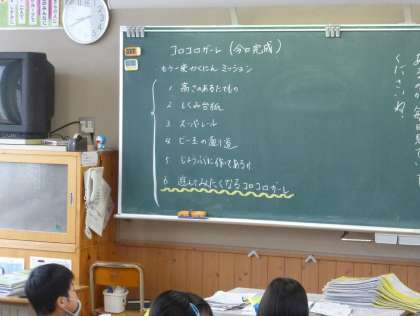 コロコロガーレ（今日完成）
・もう一度かくにん ミッション
1 高さのあるたてもの
2 しくみ台紙
3 スーパーレール
4 ビー玉の通り道
5 じょうぶに作ってあるか
6 遊んでみたくなるコロコロガーレ
ください。